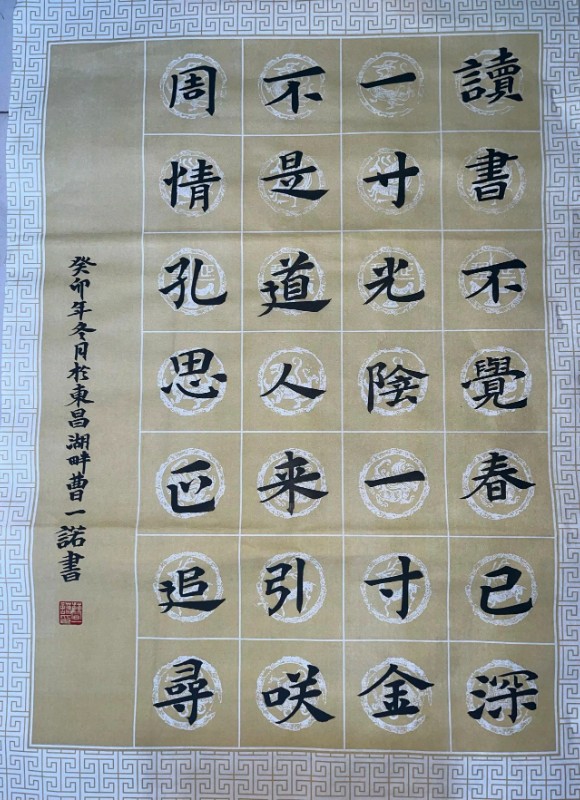 讀書不覺春已深
一寸光陰一寸金
不是道人来引咲
周情孔思正追尋
癸卯年冬月於東昌湖畔曹一諾書